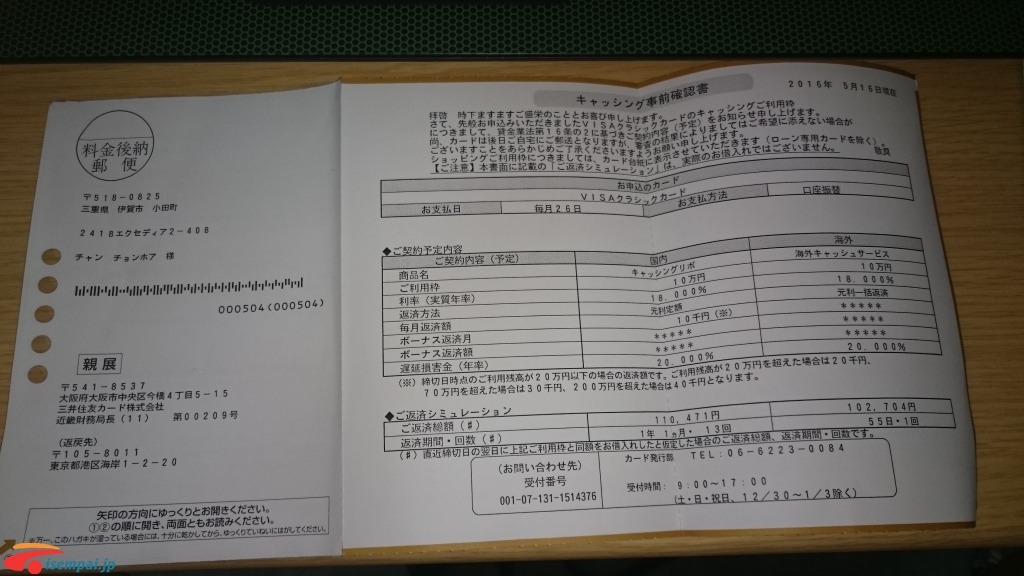 料金後納
郵便
〒518-0825
三重県 伊賀市 小田町
2418エクセディア2-408
チャン チョンホア 様
000504(000504)
親展
〒541-8537
大阪府大阪市中央区今橋4丁目5-15
三井住友カード株式会社
近畿財務局長(11) 第00209号
(返戻先)
〒105-8011
東京都港区海岸1-2-20
矢印の方向にゆっくりとお開きください。
①②の順に開き、両面ともお読みください。
※万一、このハガキが湿っている場合には、十分に乾かしてから、ゆっくりていねいにはがしてください。
isempai.jp
キャッシング事前確認書
2016年 5月16日現在
拝啓 時下ますますご盛栄のこととお喜び申し上げます。
さて、先般お申込みいただきましたVISAクラシックカードのキャッシングご利用枠
につきまして、貸金業法第16条の2に基づき、ご契約内容(予定)をお知らせ申し上げます。
尚、カードは後日ご自宅にご郵送となりますが、審査の結果によりましてはご希望に添えない場合が
ございますことをあらかじめご了承くださいますようお願い申し上げます。
ショッピングご利用枠につきましては、カード台紙に表示させていただきます(ローン専用カードを除く)。
【ご注意】本書面に記載の「ご返済シミュレーション」は、実際のお借入れではございません。 敬具
お申込のカード
VISAクラシックカード
お支払日 毎月26日 お支払方法 口座振替
◆ご契約予定内容
ご契約内容(予定) 国内 海外
商品名 キャッシングリボ 海外キャッシュサービス
ご利用枠 10万円 10万円
利率(実質年率) 18.000% 18.000%
返済方法 元利定額 元利一括返済
毎月返済額 10千円(※) *****
ボーナス返済月 ***** *****
ボーナス返済額 ***** *****
遅延損害金(年率) 20.000% 20.000%
(※)締切日時点のご利用残高が20万円以下の場合の返済額です。ご利用残高が20万円を超えた場合は20千円、
70万円を超えた場合は30千円、200万円を超えた場合は40千円となります。
◆ご返済シミュレーション
ご返済総額(#) 110,471円 102,704円
返済期間・回数(#) 1年 1ヵ月・ 13回 55日・1回
(#)直近締切日の翌日に上記ご利用枠と同額をお借入れしたと仮定した場合のご返済総額、返済期間・回数です。
(お問い合わせ先)
受付番号
001-07-131-1514376
カード発行部 TEL:06-6223-0084
受付時間: 9:00~17:00
(土・日・祝日、12/30~1/3除く)